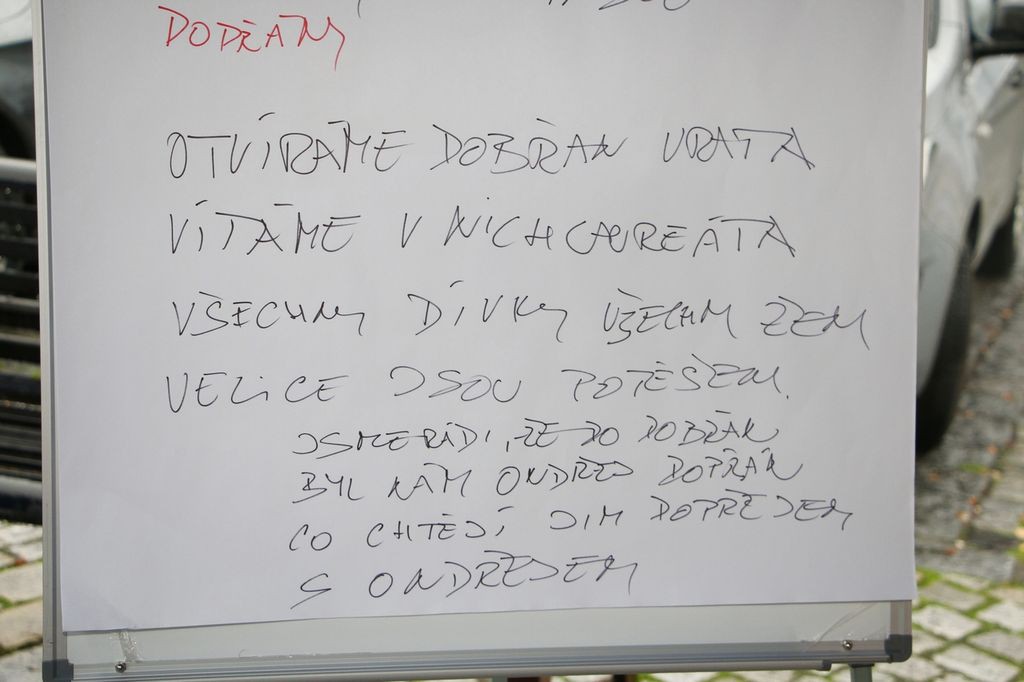 DODĚÁNY
OTVÍRÁME DOBŘAN VRATA
VÍTÁME V NICH LAUREÁTA
VŠECHNY DÍVKY VŠECH ZEM
VELICE JSOU POTĚŠEM.
JSME RÁDI, ŽE DO DOBŘAN
BYL NÁM ONDŘEJ DOPŘÁN
CO CHTĚJÍ JIM DOPŘEJEM
S ONDŘEJEM